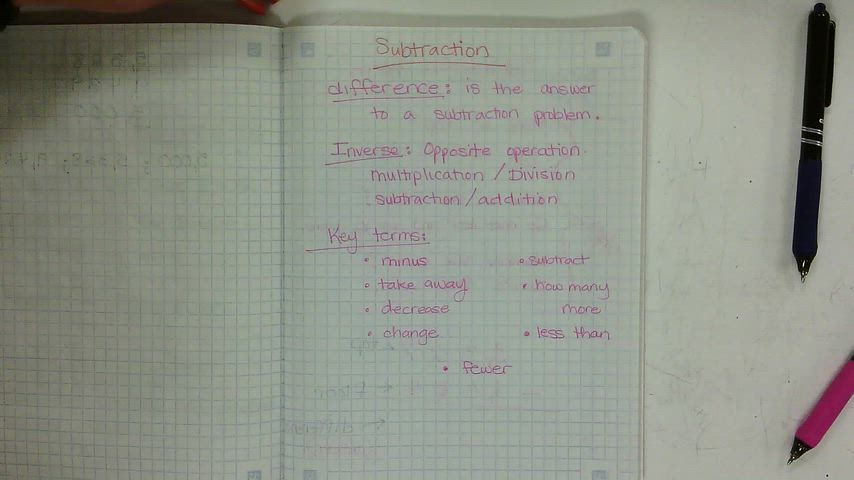 Subtraction
difference: is the answer
to a subtraction problem.
Inverse: Opposite operation.
multiplication / Division
subtraction / addition
Key terms:
• minus
• take away
• decrease
• change
• subtract
• how many
more
• less than
• fewer